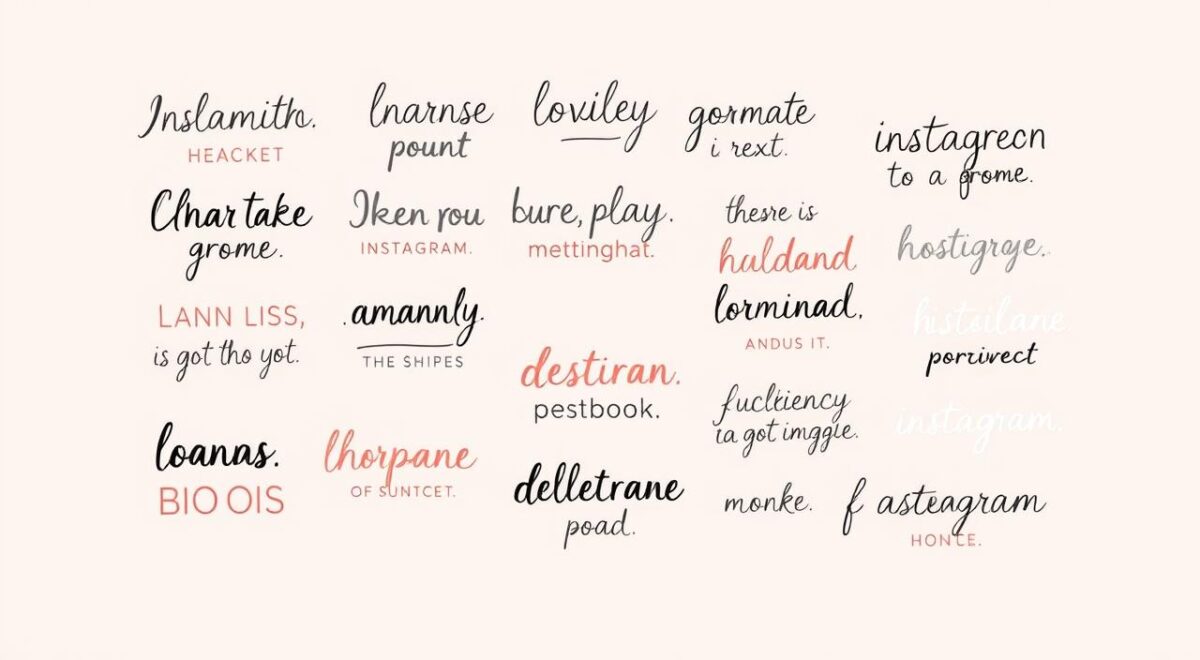 Inslamith.
HEACKET
lnarnse
pount
loviley
gormate
i rext.
instagrecn
to a grome.
Clhar take
grome.
Iken rou
INSTAGRAM.
bure, play.
mettinghat.
thesre is
huldand
hostigrye..
LANN LISS,
is got tho yot.
.amannly.
THE SHIPES
lorminad,
ANDUS IT.
histoilane
porrivect
destiran.
pestbook.
fucltiency
ia got imggie.
instagram.
loanas.
BIO OIS
lhorpane
OF SUNTCET.
delletrane
poad.
monke.
f asteagram
HONCE.